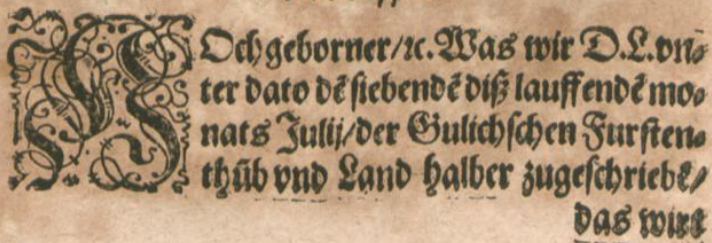 HOchgeborner/ꝛc. Was wir D.L. vn⸗
ter dato dẽ siebendẽ diß lauffendẽ mo⸗
nats Julij/der Gulichschen Fursten⸗
thũb vnd Land halber zugeschriebẽ/
das wirt